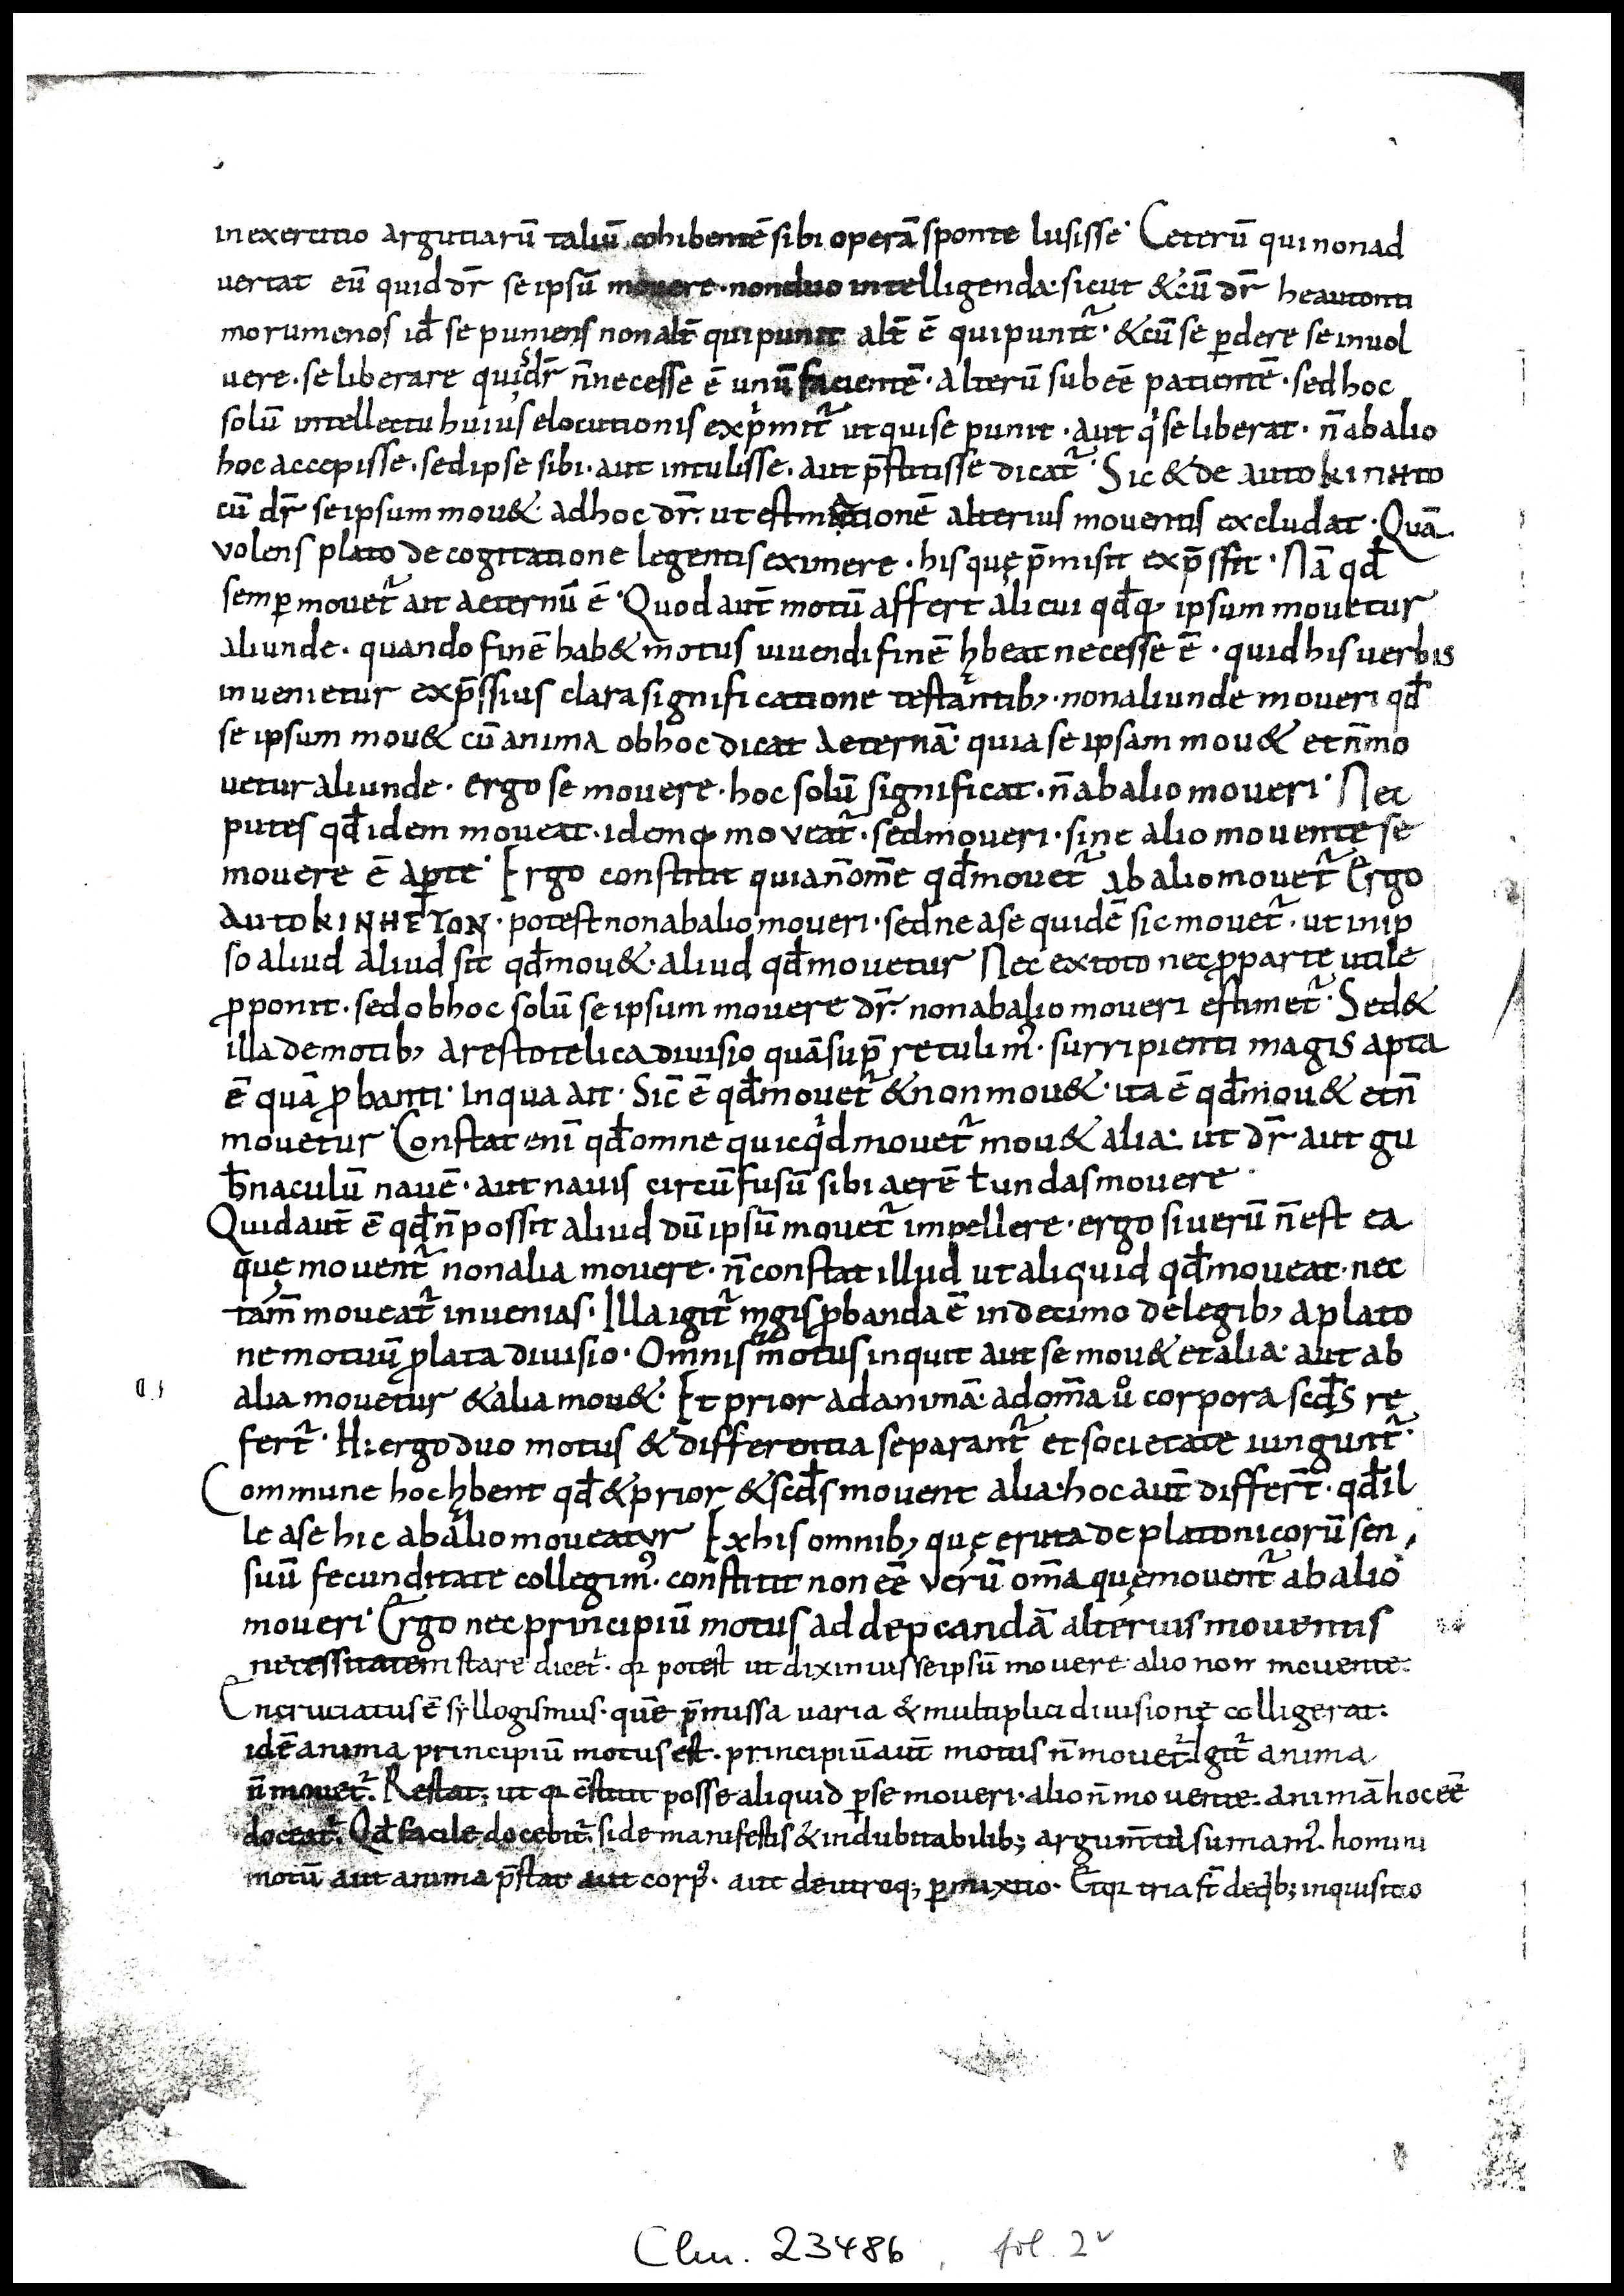 in exertitio argutiarū taliū cohibentē sibi operā sponte lusisse· Ceterū qui non ad
vertat eū quid dr̄ se ipsū movere· non duo intelligenda· sicut & cū dr̄ heautonti
morumenos id̄ se puniens non alt̄ qui punit alt̄ ē qui punit᷑· & cū se ꝑdere se invol
vere· se liberare quisq̇ dr̄ n̄ necesse ē unū facientē· alterū subeē patientē· sed hoc
solū intellectu huius elocutionis exp̄mit᷑ ut qui se punit· aut q̇ se liberat· n̄ ab alio
hoc accepisse· sed ipse sibi· aut intulisse· aut p̄stitisse dicat᷑· Sic & de autokinHto
cū dr̄ se ipsum mou&· ad hoc dr̄· ut estimationē alterius moventis excludat· Quā
volens plato de cogitatione legentis eximere· his quę p̄misit exp̄ssit· Nā qd̄
semꝑ movet᷑ ait aeternū ē· Quod aut̄ motū affert alicui qd̄q; ipsum movetur
aliunde· quando finē hab& motus vivendi finē hbeat necesse ē· quid his verbis
invenietur exp̄ssius clara significatione testantib; non aliunde moveri qd̄
se ipsum mou& cū anima ob hoc dicat aeternā· quia se ipsam mou& et n̄ mo
vetur aliunde· ergo se movere· hoc solū significat· n̄ ab alio moveri· Nec
putes qd̄ idem moveat· idemq; moveat᷑· sed moveri· sine alio movente se
movere ē aꝑte· Ergo constitit quia n̄ om̄e qd̄ movet᷑ ab alio movet᷑ Ergo
AUTOKINHETON· potest non ab alio moveri· sed ne a se quidē sic movet᷑· ut in ip
so aliud aliud sit qd̄ mou&· aliud qd̄ movetur Nec ex toto nec ꝓ parte utile
ꝓponit· sed ob hoc solū se ipsum movere dr̄· non ab alio moveri estimet᷑· Sed &
illa de motib; arestotelica divisio quā sup̄ retulimꝰ· surripienti magis apta
ē quā ꝓbanti· in qua ait· Sic̄ ē qd̄ movet᷑ & non mou&· ita ē qd̄ mou& et n̄
movetur Constat enī qd̄ omne quicq̇d movet᷑ mou& alia· ut dr̄ aut gu
b̄naculū navē· aut navis circūfusū sibi aerē ł undas movere·
Quid aut̄ ē qd̄ n̄ possit aliud dū ipsū movet᷑ impellere· ergo si verū n̄ est ea
quę movent᷑ non alia movere· n̄ constat illud ut aliquid qd̄ moveat· nec
tam̄ moveat᷑ invenias· Illa igit᷑ mgis ꝓbanda ē in decimo de legib; a plato
ne motuū ꝓlata divisio· Omnis motus inquit aut se mou& et alia· aut ab
alia movetur & alia mou&· Et prior ad animā· ad om̄a ů corpora scd̄s re
fert᷑· Hi ergo duo motus & differentia separant᷑ et societate iungunt᷑·
Commune hoc hbent qd̄ & prior & scd̄s movent alia· hoc aut̄ differt̄· qd̄ il
le a se hic ab alio moveatur Ex his omnib; quę eruta de platonicorū sen
suū fecunditate collegimꝰ· constitit non eē verū om̄a quę movent᷑ ab alio
moveri· Ergo nec principiū motus ad dep̄candā alterius moventis
necessitatem stare dicet᷑· qꝛ potest ut diximus se ipsū movere alio non movente·
Encruciatus ē syllogismus· quē p̄missa varia & multiplici divisione colligerat·
idē anima principiū motus est· principiū aut̄ motus n̄ movet᷑· Igit᷑ anima
n̄ movet᷑· Restat; ut qꝛ c̄stitit posse aliquid ꝑ se moveri· alio n̄ movente· animā hoc eē
doceat᷑· Qd̄ facile docebit᷑· si de manifestis & indubitabilib; argum̄ta sumamꝰ· homini
motū aut anima p̄stat aut corpꝰ· aut de utroq; ꝑmixtio· Et qꝛ tria st̄ de q̇b; inquisitio
Clm. 23486, fol. 2v